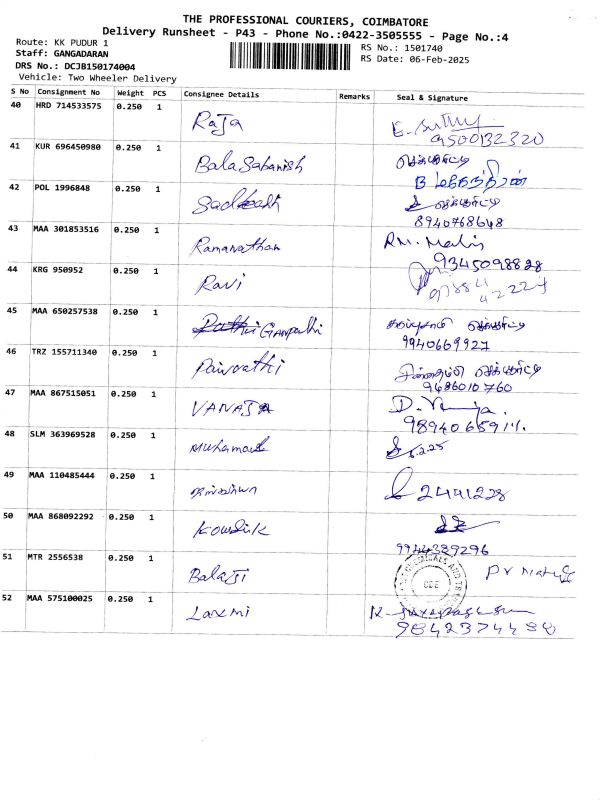 THE PROFESSIONAL COURIERS, COIMBATORE
Delivery Runsheet - P43 - Phone No.:0422-3505555 - Page No.:4
Route: KK PUDUR 1
RS No.: 1501740
Staff: GANGADARAN
RS Date: 06-Feb-2025
DRS No.: DCJB150174004
Vehicle: Two Wheeler Delivery
S No Consignment No Weight PCS Consignee Details Remarks Seal & Signature
40 HRD 714533575 0.250 1 Raja
9500132320
41 KUR 696450980 0.250 1 Bala Sabanish செக்யூரிட்டி
42 POL 1996848 0.250 1 செக்யூரிட்டி
8940768648
43 MAA 301853516 0.250 1 Ramanathan
9345098828
44 KRG 950952 0.250 1 Ravi
45 MAA 650257538 0.250 1 Ganpathi செக்யூரிட்டி
9940669927
46 TRZ 155711340 0.250 1 Parvathi செக்யூரிட்டி
9486010760
47 MAA 867515051 0.250 1 VANAJA
48 SLM 363969528 0.250 1 6.2.25
49 MAA 110485444 0.250 1 2441228
50 MAA 868092292 0.250 1 Kowsik
9944389296
51 MTR 2556538 0.250 1 Balaji
CBE
52 MAA 575100025 0.250 1 Laxmi